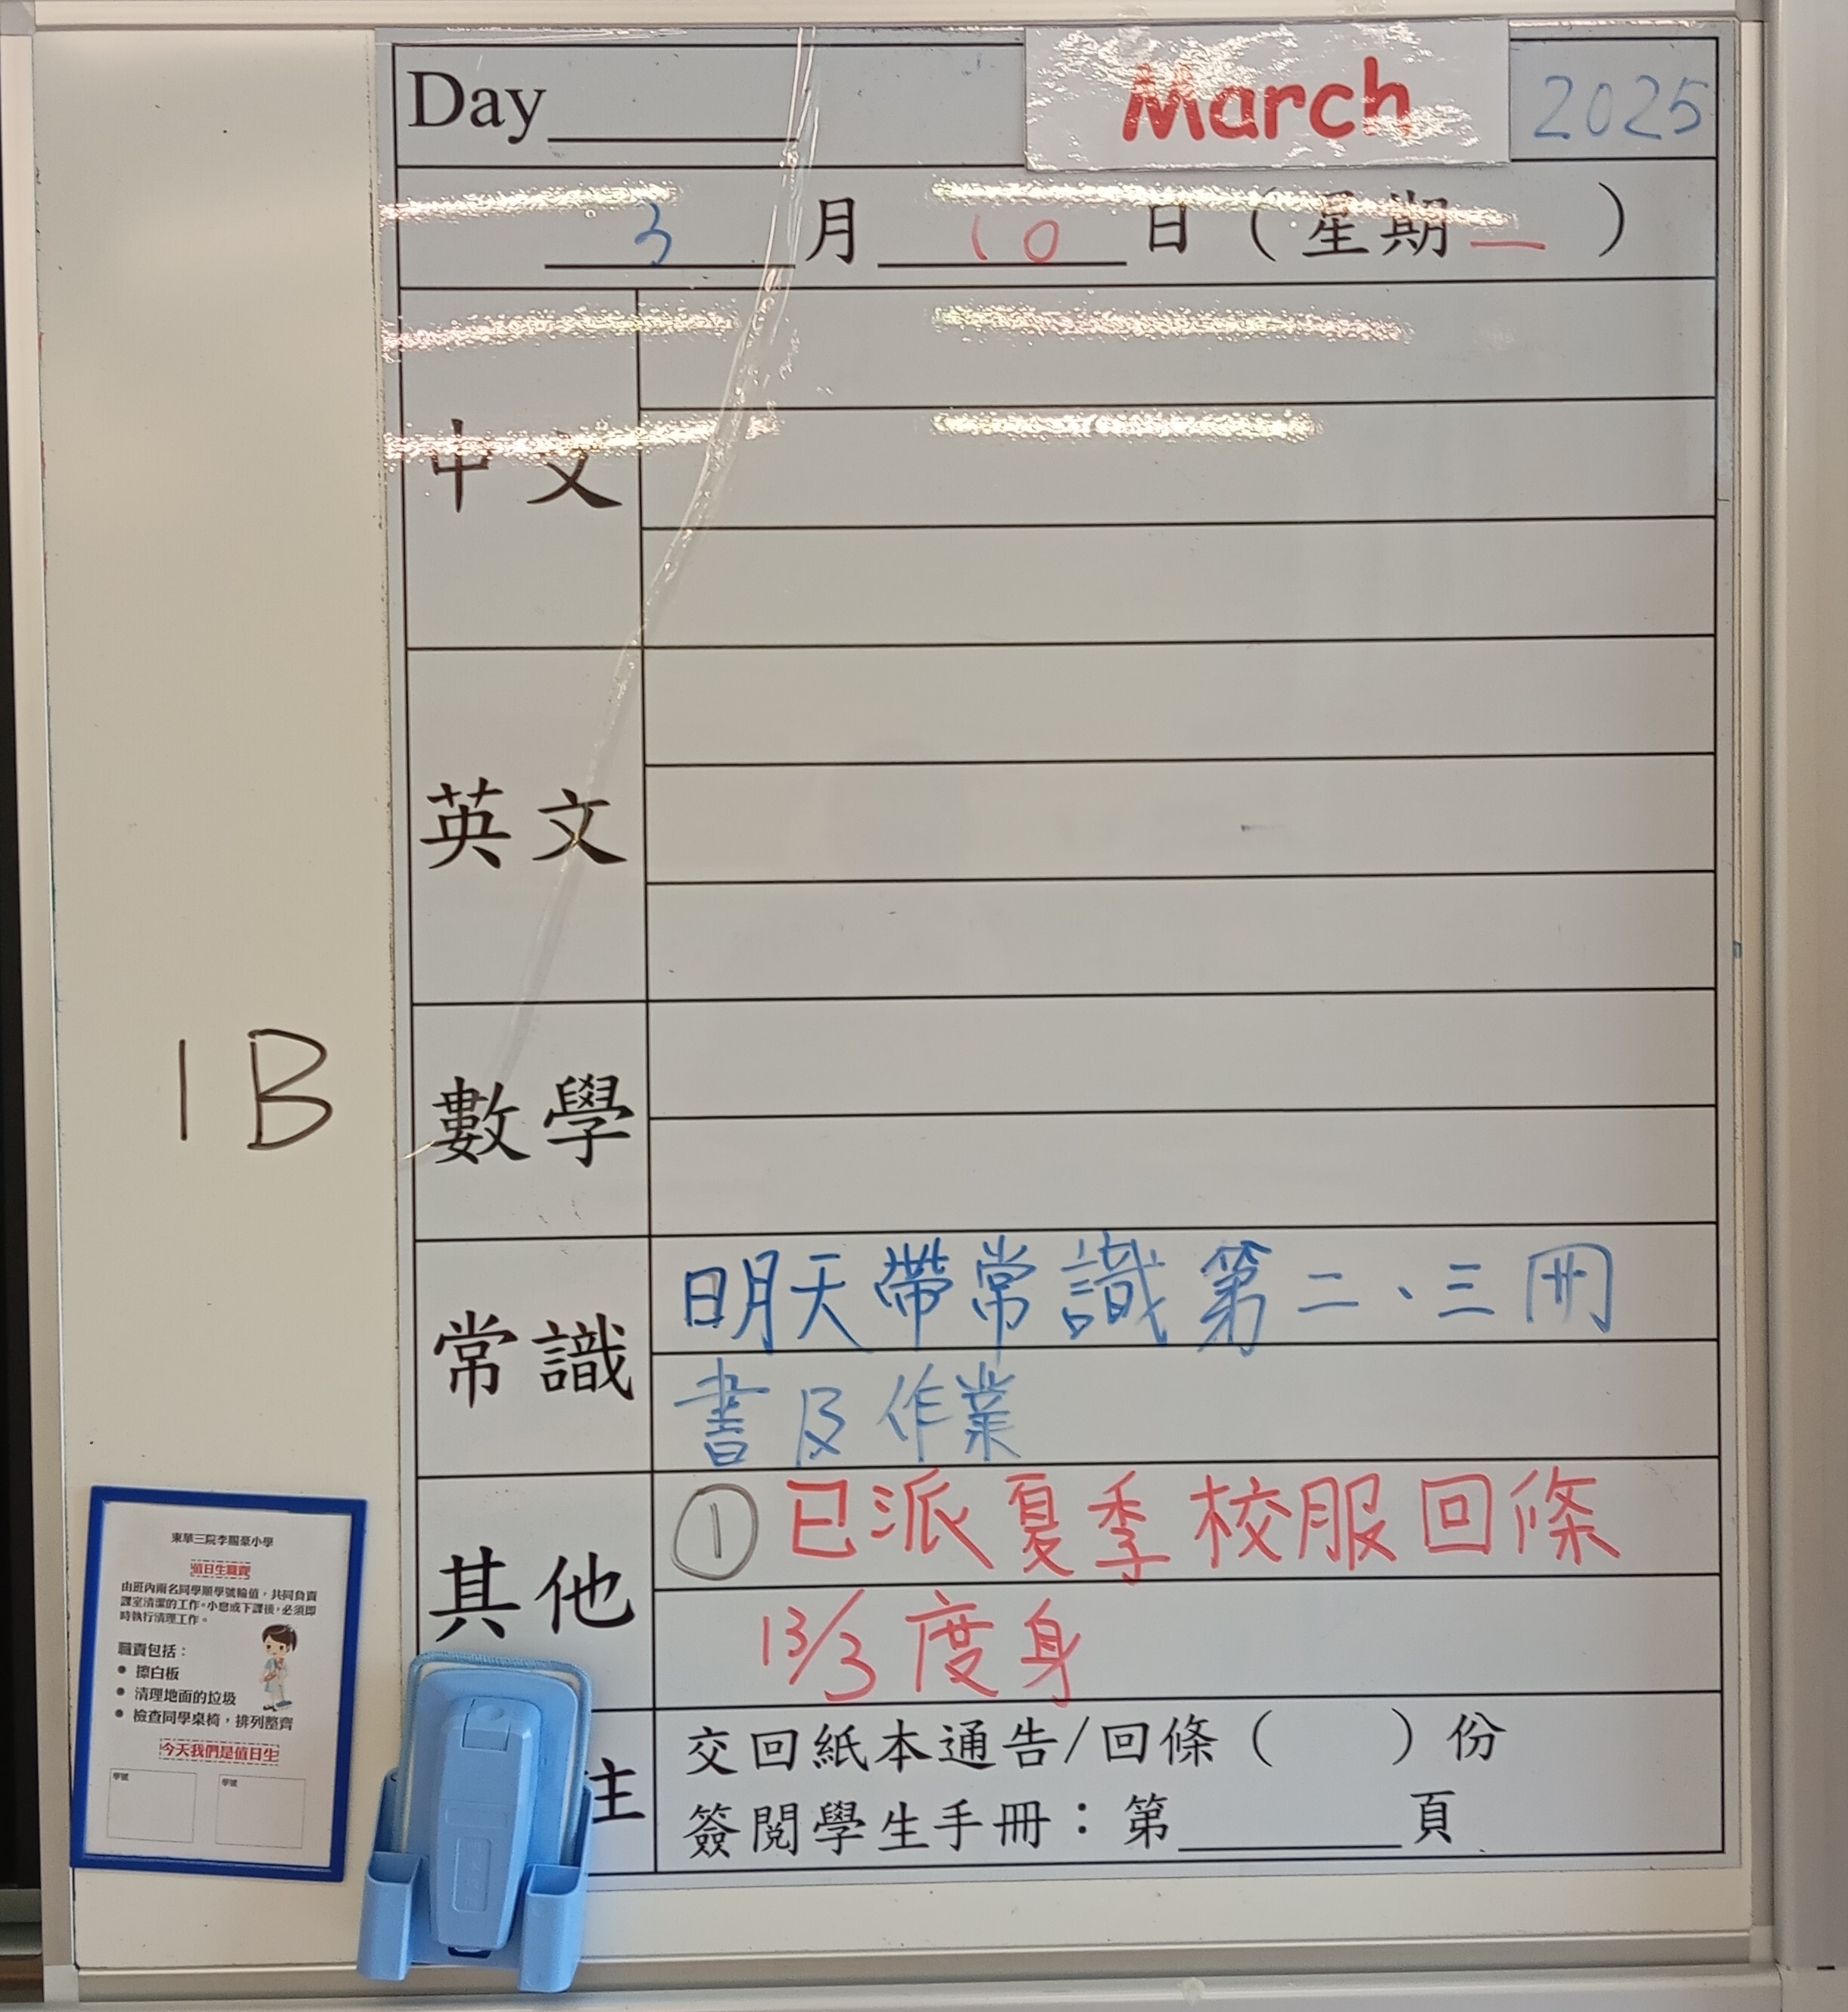 Day
March 2025
3月10日(星期一)
中文
英文
數學
常識
明天帶常識第二、三冊
書及作業
其他
① 已派夏季校服回條
13/3 度身
主
交回紙本通告/回條( )份
簽閱學生手冊：第 頁
1B
東華三院李賜豪小學
值日生職責
由班內兩名同學順學號輪值，共同負責
課室清潔的工作。小息或下課後，必須即
時執行清理工作。
職責包括：
• 擦白板
• 清理地面的垃圾
• 檢查同學桌椅，排列整齊
今天我們是值日生
學號 學號